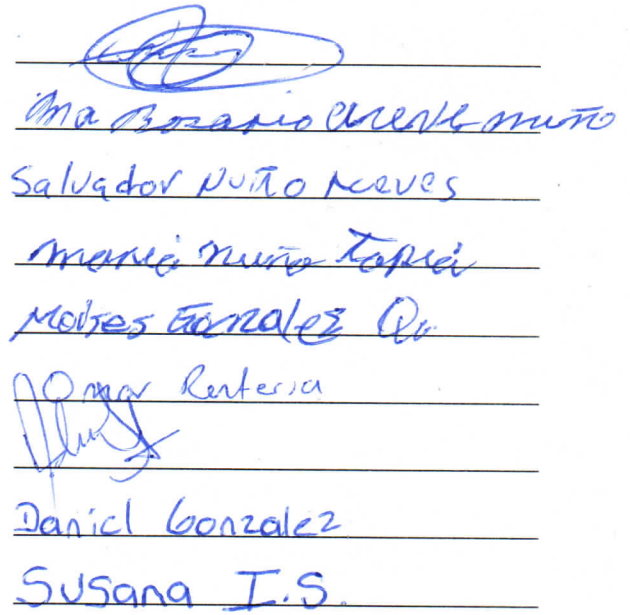 Ma Rosario Nuño
Salvador Nuño Aceves
Maria Nuño Tapia
Moises Gonzalez Q.
Omar Renteria
Daniel Gonzalez
Susana I.S.